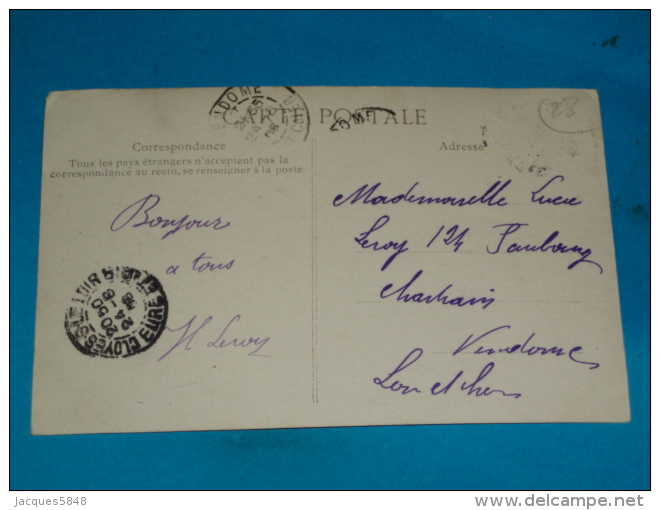 CARTE POSTALE
Correspondance
Tous les pays étrangers n'acceptent pas la
correspondance au recto, se renseigner à la poste
Adresse
28
Bonjour
a tous
H Leroy
Mademoiselle Lucie
Leroy 124 Faubourg
Chartrain
Vendome
Loir et cher
VENDOME
DOME
CLOYES
EURE ET LOIR
20 50
24 -8
Jacques5848
www.delcampe.net